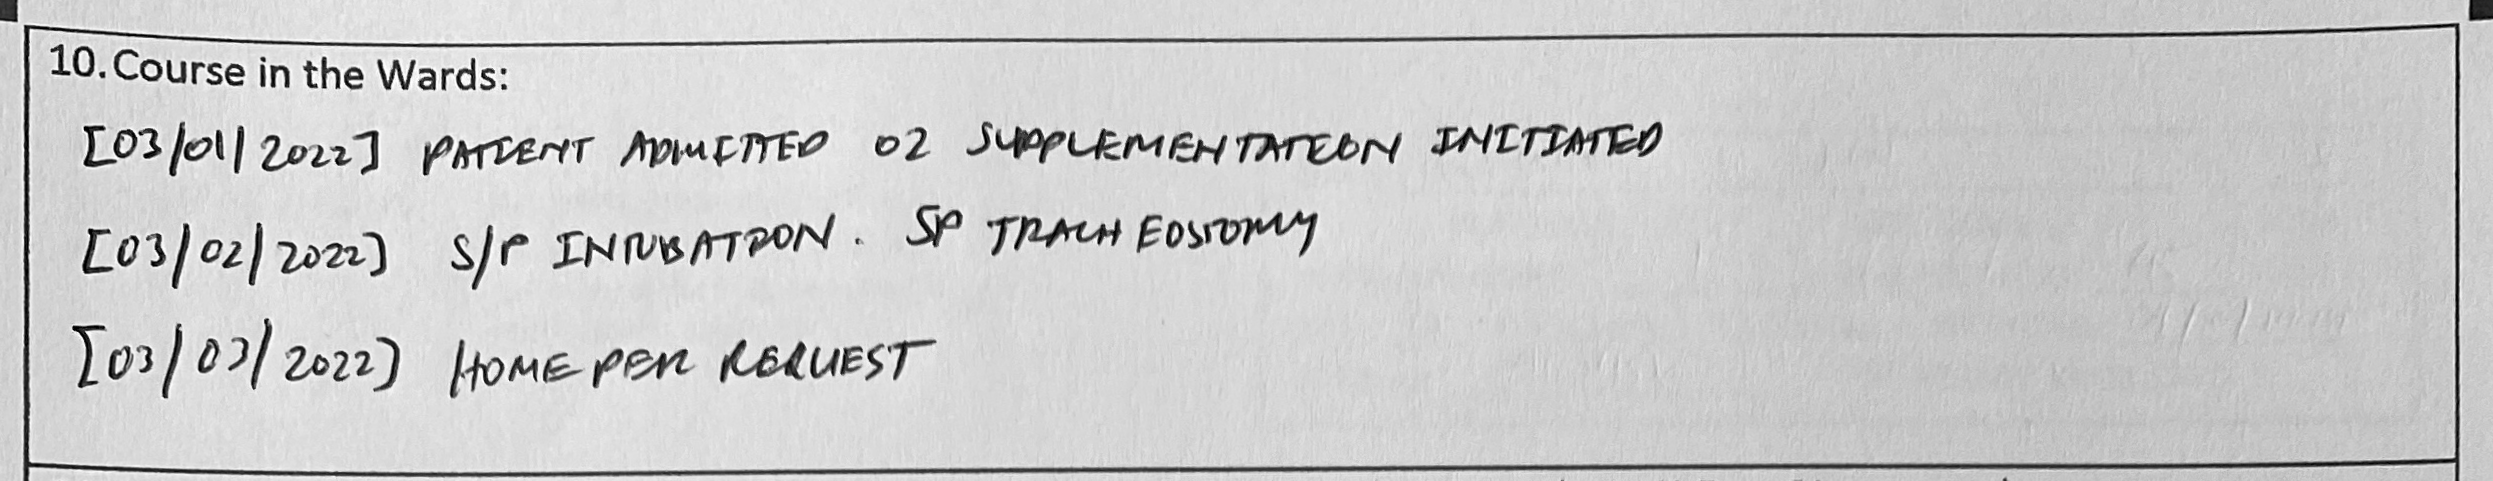 10. Course in the Wards:
[03/01/2022] PATIENT ADMITTED O2 SUPPLEMENTATION INITIATED
[03/02/2022] S/P INTUBATION. SP TRACHEOSTOMY
[03/03/2022] HOME PER REQUEST